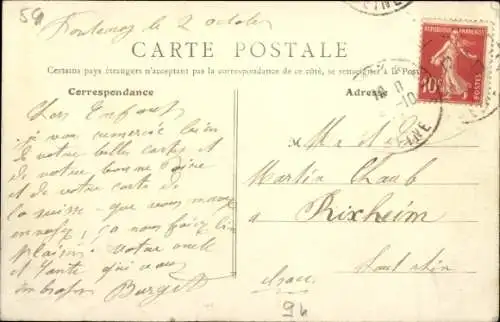 59
Fontenay le 2 octobre
CARTE POSTALE
Certains pays étrangers n'acceptant pas la correspondance de ce côté, se renseigner à la Poste
Correspondance
Chers Enfants
je vous remercie bien
de votre belles cartes et
de votre bonne
et de votre carte de
la suisse que vous m'avez
envoyez, ça nous faiz bien
plaisir. Votre oncle
et Tante qui vous
embrasse Burget
Adresse
REPUBLIQUE FRANÇAISE
10c
POSTES
M et
Martin Chaub
a Rixheim
haut rhin
alsace